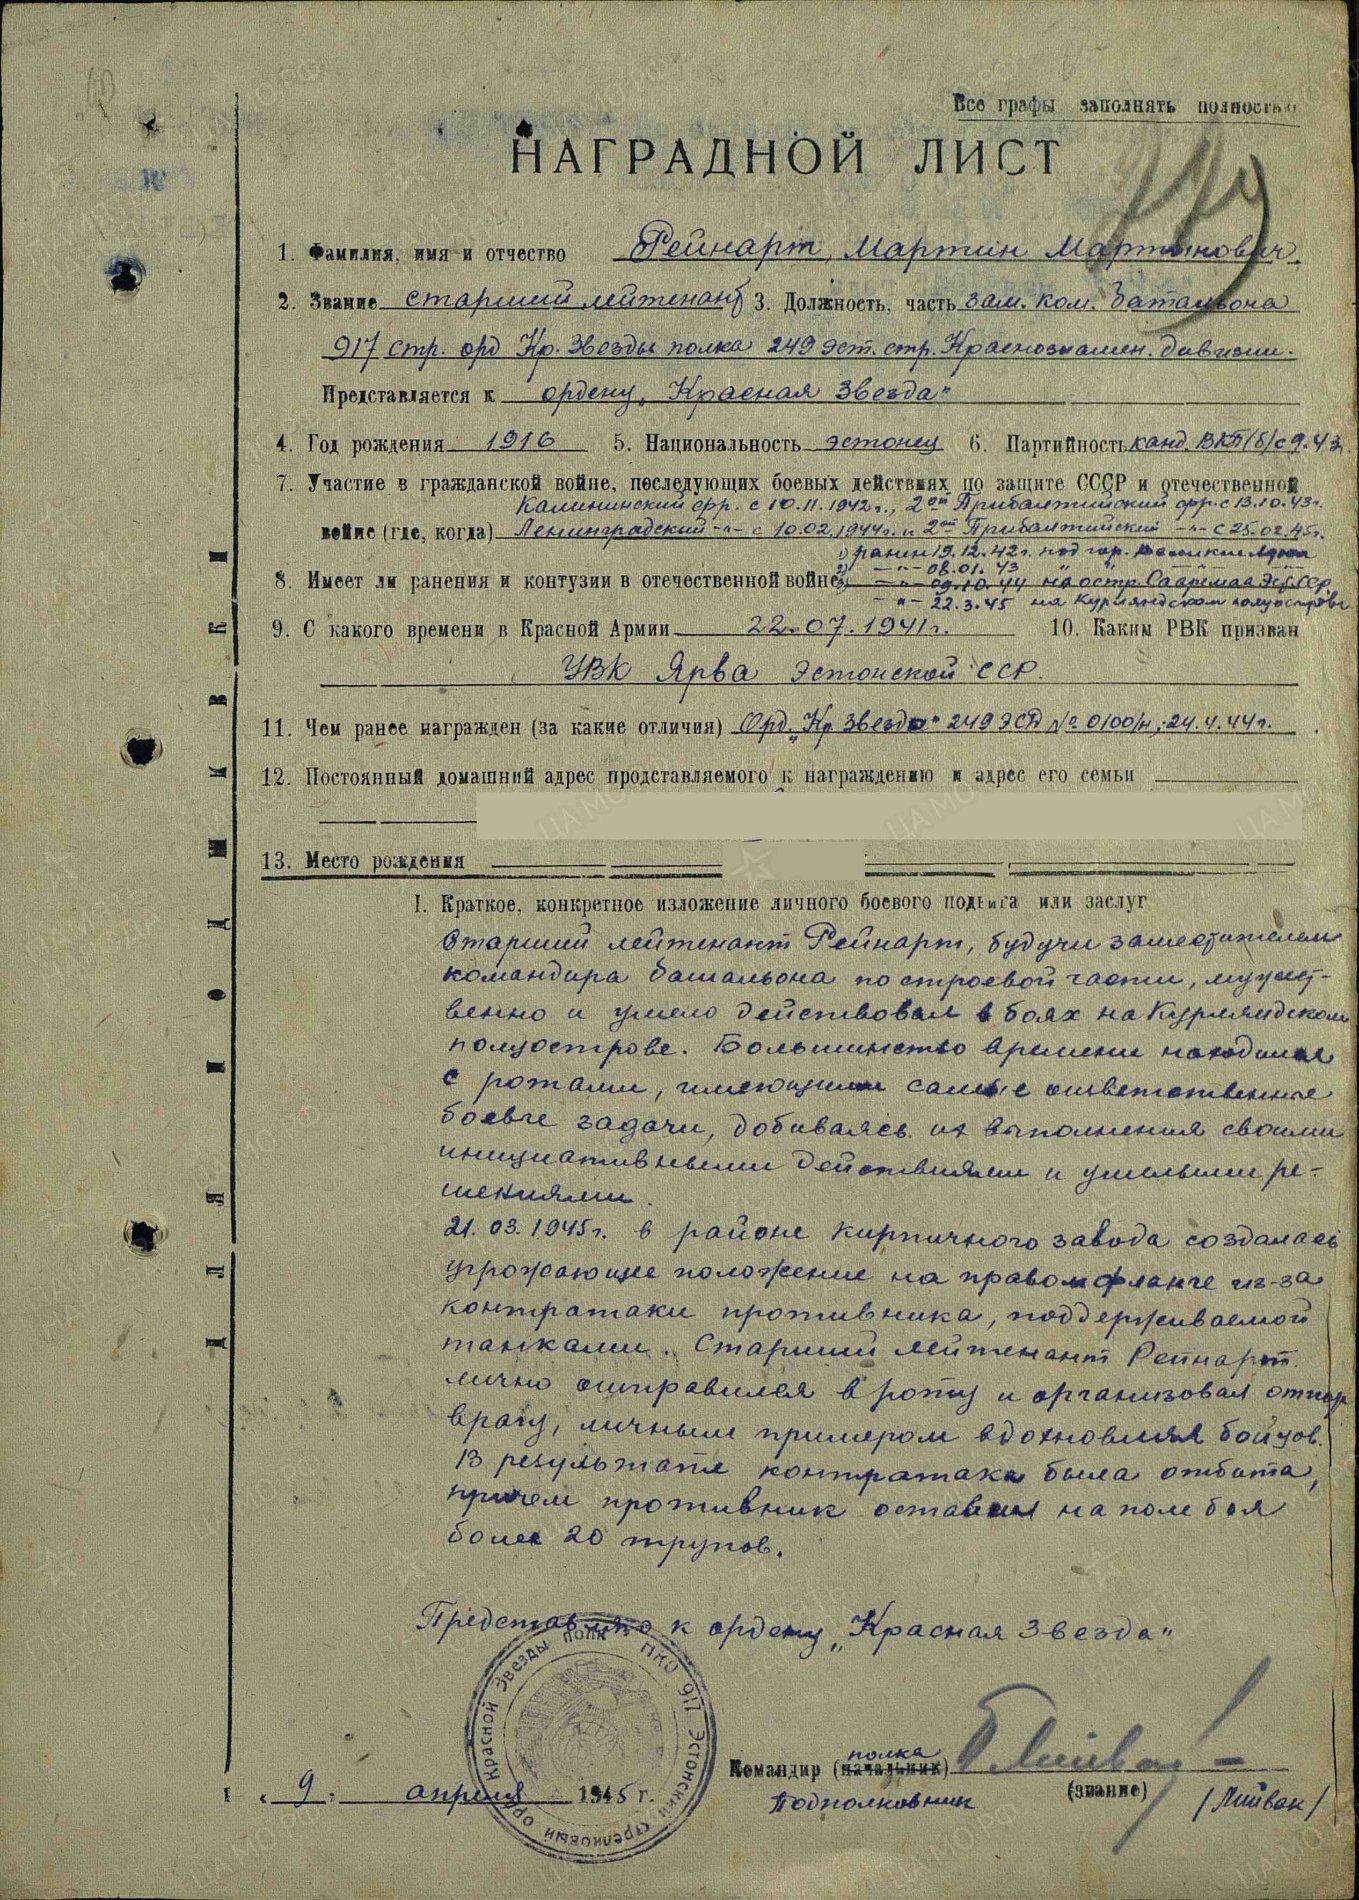 Все графы заполнять полностью
НАГРАДНОЙ ЛИСТ
1. Фамилия, имя и отчество Рейнарт, Мартин Мартынович.
2. Звание старший лейтенант 3. Должность, часть зам. ком. батальона
917 стр. орд Кр. Звезды полка 249 эст. стр. Краснознамен. дивизии.
Представляется к ордену „Красная Звезда"
4. Год рождения 1916 5. Национальность эстонец 6. Партийность канд. ВКП(б) с 9.43г.
7. Участие в гражданской войне, последующих боевых действиях по защите СССР и отечественной
Калининский фр. с 10.11.1942г., 2ой Прибалтийский фр. с 13.10.43г.
войне (где, когда) Ленинградский -"- с 10.02.1944г. и 2ой Прибалтийский -"- с 25.02.45г.
1) ранен 19.12.42г. под гор. Великие Луки
2) -"- 08.01.43 " "
8. Имеет ли ранения и контузии в отечественной войне 3) -"- 09.10.44 на остр. Сааремаа Эст. ССР.
-"- 22.3.45 на Курляндском полуострове
9. С какого времени в Красной Армии 22.07.1941г. 10. Каким РВК призван
УВК Ярва Эстонской ССР.
11. Чем ранее награжден (за какие отличия) Орд. „Кр. Звезда" 249 ЭСД № 0100/н, 24.4.44г.
12. Постоянный домашний адрес продставляемого к награждению и адрес его семьи
13. Место рождения
I. Краткое, конкретное изложение личного боевого подвига или заслуг
Старший лейтенант Рейнарт, будучи заместителем
командира батальона по строевой части, мужест-
венно и умело действовал в боях на Курляндском
полуострове. Большинство времени находился
с ротами, имеющими самые ответственные
боевые задачи, добиваясь их выполнения своими
инициативными действиями и умелыми ре-
шениями.
21.03.1945г. в районе кирпичного завода создалась
угрожающее положение на правом фланге из-за
контратаки противника, поддерживаемой
танками. Старший лейтенант Рейнарт
лично отправился в роту и организовал отпор
врагу, личным примером вдохновляя бойцов.
В результате контратака была отбита,
причем противник оставил на поле боя
более 20 трупов.
Представляю к ордену „Красная Звезда"
НКО 917 Эстонский стрелковый орд. Красной Звезды полк
Командир (начальник) полка
(звание)
Подполковник /Лийвак/
„ 9 " апреля 1945 г.
ДЛЯ ПОДШИВКИ